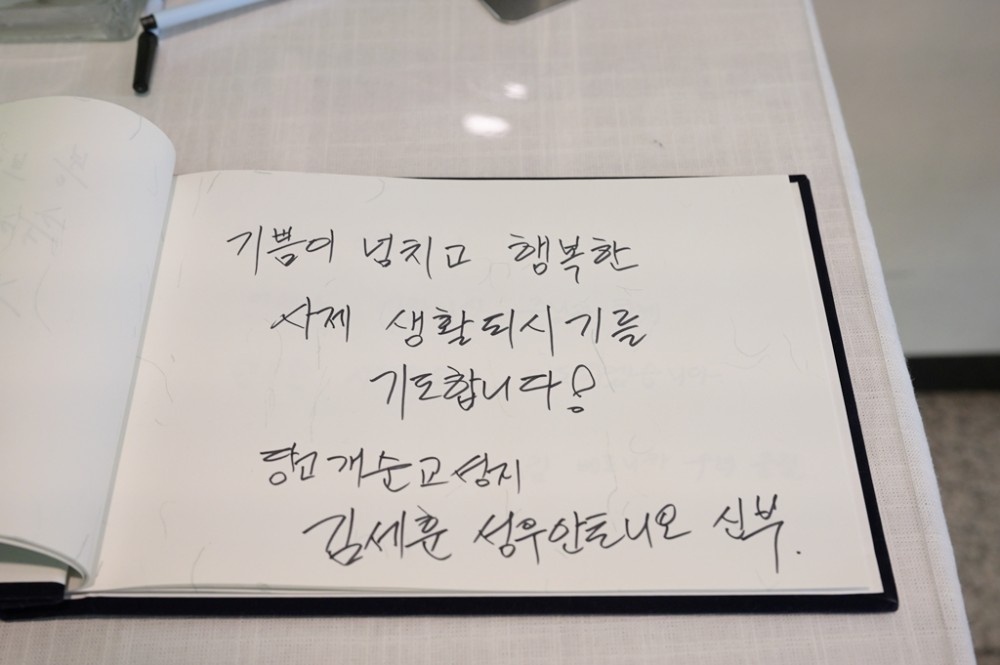 기쁨이 넘치고 행복한
사제 생활되시기를
기도합니다!
당고개순교성지
김세훈 성우안토니오 신부.